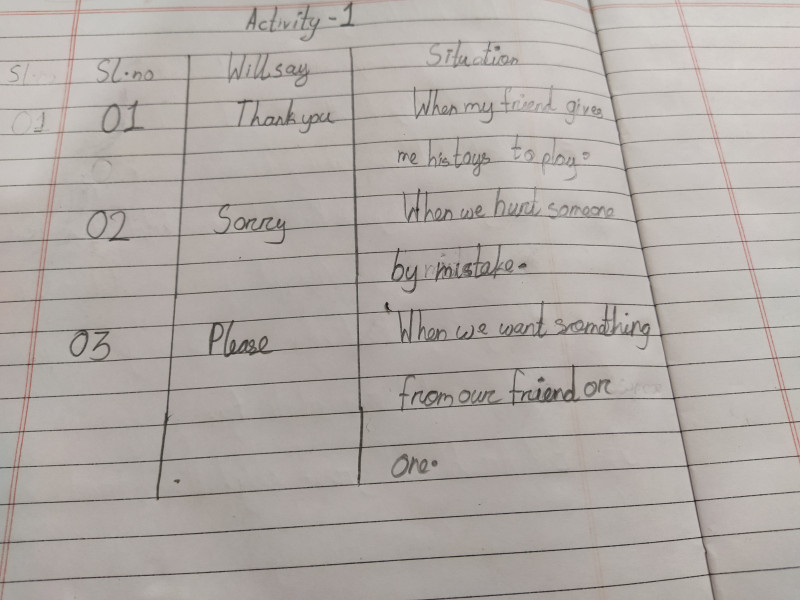 Activity-1
Sl. Sl.no Will say Situation
01 01 Thank you When my friend gives
me his toys to play.
02 Sorry When we hurt someone
by mistake.
03 Please When we want somthing
from our friend or
one.